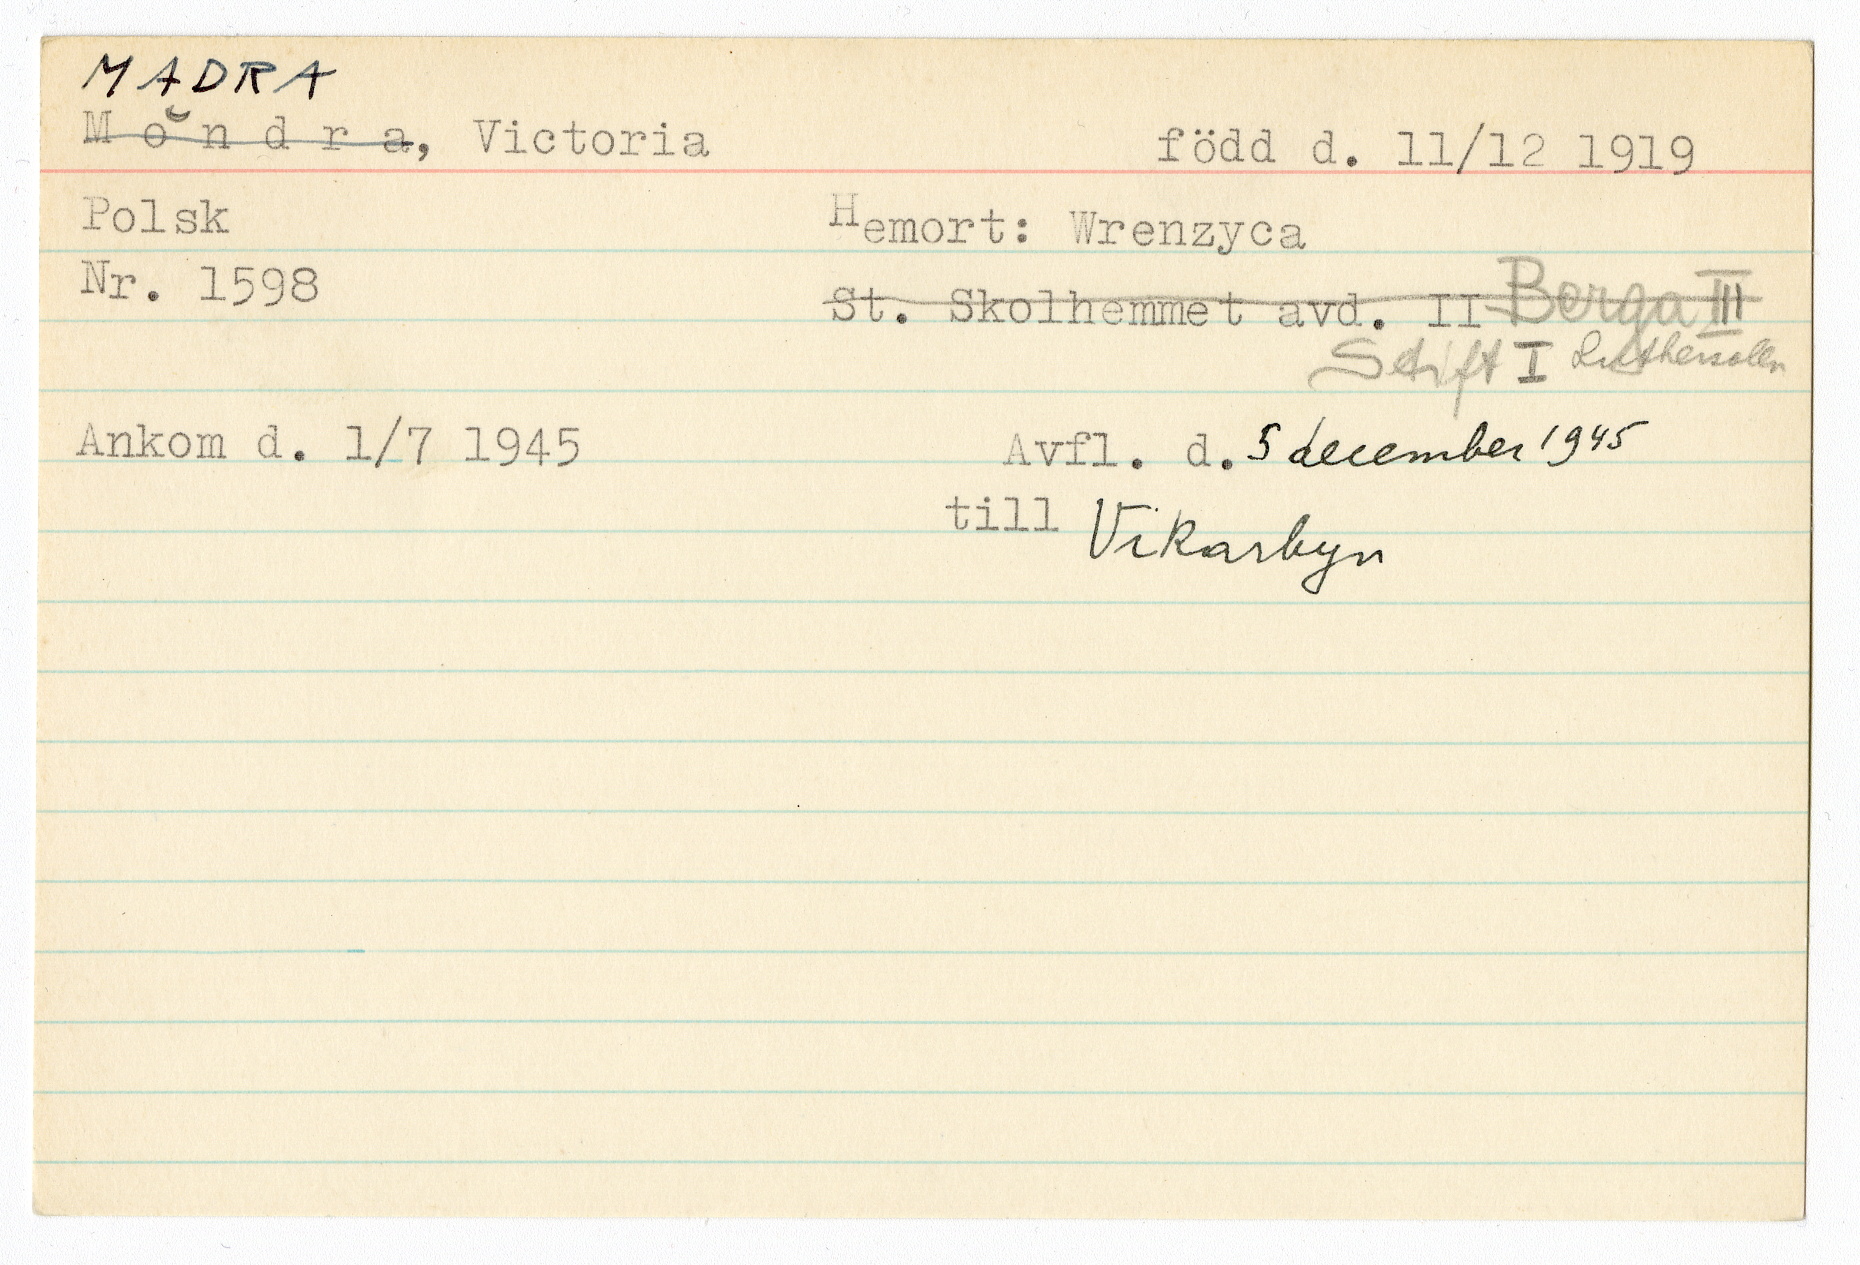 MADRA
M o n d r a, Victoria född d. 11/12 1919
Polsk Hemort: Wrenzyca
Nr. 1598 St. Skolhemmet avd. II Berga III
Stift I
Ankom d. 1/7 1945 Avfl. d. 5 december 1945
till Vikarbyn